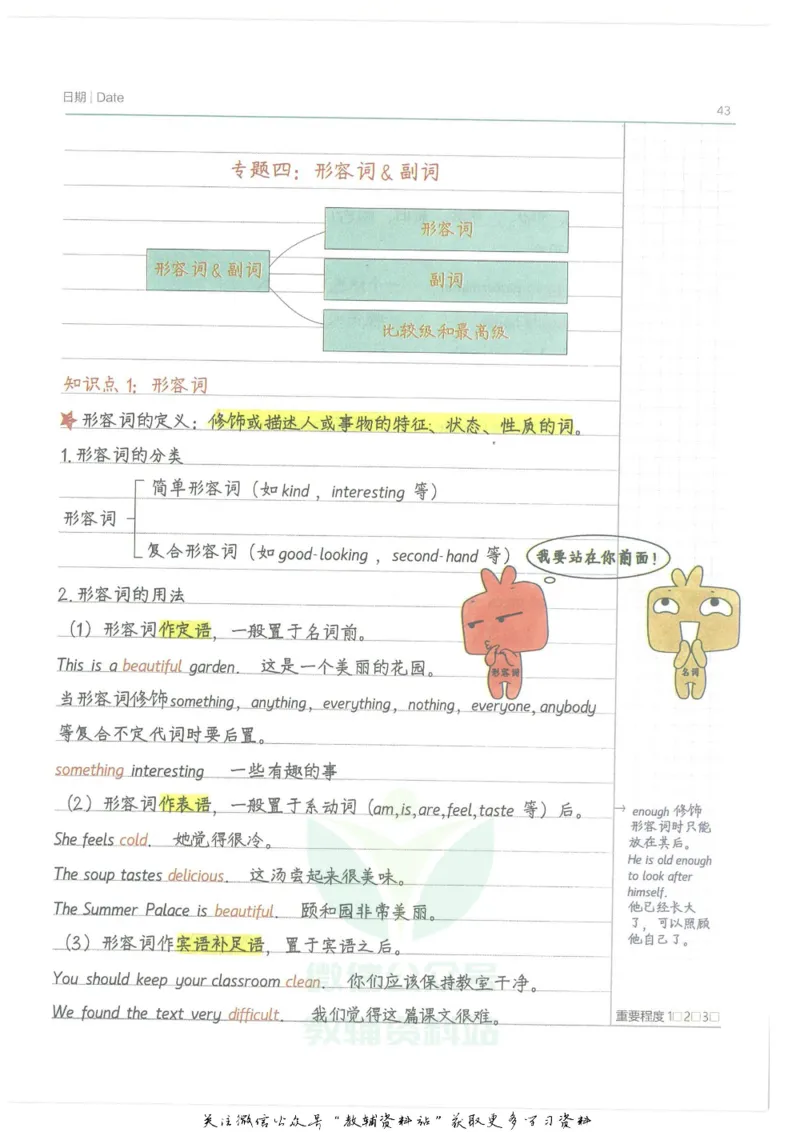 日期 | Date
43
专题四：形容词&副词
形容词&副词
形容词
副词
比较级和最高级
知识点1：形容词
形容词的定义：修饰或描述人或事物的特征、状态、性质的词。
1.形容词的分类
形容词
简单形容词（如kind，interesting 等）
复合形容词（如good-looking，second-hand 等）
我要站在你前面！
形容词
名词
2.形容词的用法
（1）形容词作定语，一般置于名词前。
This is a beautiful garden. 这是一个美丽的花园。
当形容词修饰something，anything，everything，nothing，everyone，anybody
等复合不定代词时要后置。
something interesting 一些有趣的事
（2）形容词作表语，一般置于系动词（am,is,are,feel,taste 等）后。
She feels cold. 她觉得很冷。
The soup tastes delicious. 这汤尝起来很美味。
The Summer Palace is beautiful. 颐和园非常美丽。
（3）形容词作宾语补足语，置于宾语之后。
You should keep your classroom clean. 你们应该保持教室干净。
We found the text very difficult. 我们觉得这篇课文很难。
→ enough 修饰
形容词时只能
放在其后。
He is old enough
to look after
himself.
他已经长大
了，可以照顾
他自己了。
重要程度 1□2□3□
微信公众号
教辅资料站
关注微信公众号“教辅资料站”获取更多学习资料